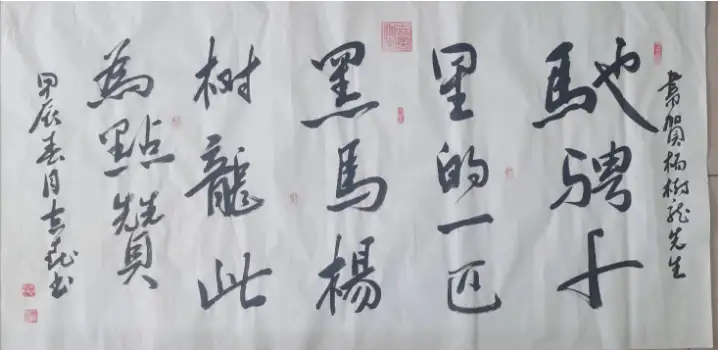 喜賀楊树龙先生
馳騁千
里的一匹
黑馬楊
树龍此
為點贊
甲辰春月吉书